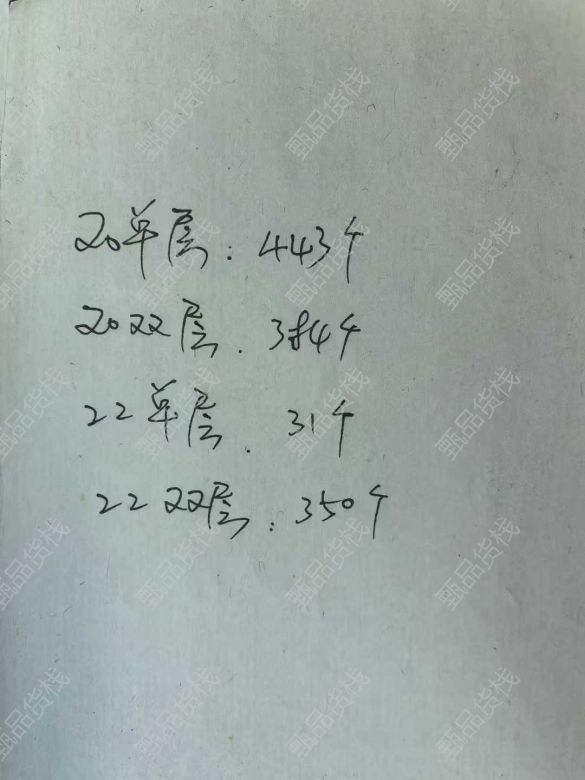 20单层：443个
20双层．384个
22单层．31个
22双层：350个
甄品货栈